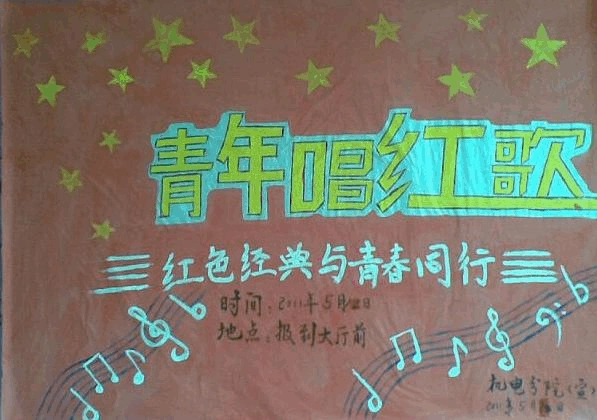 青年唱红歌
红色经典与青春同行
时间：2011年5月日
地点：报到大厅前
机电分院（宣）
2011年5月